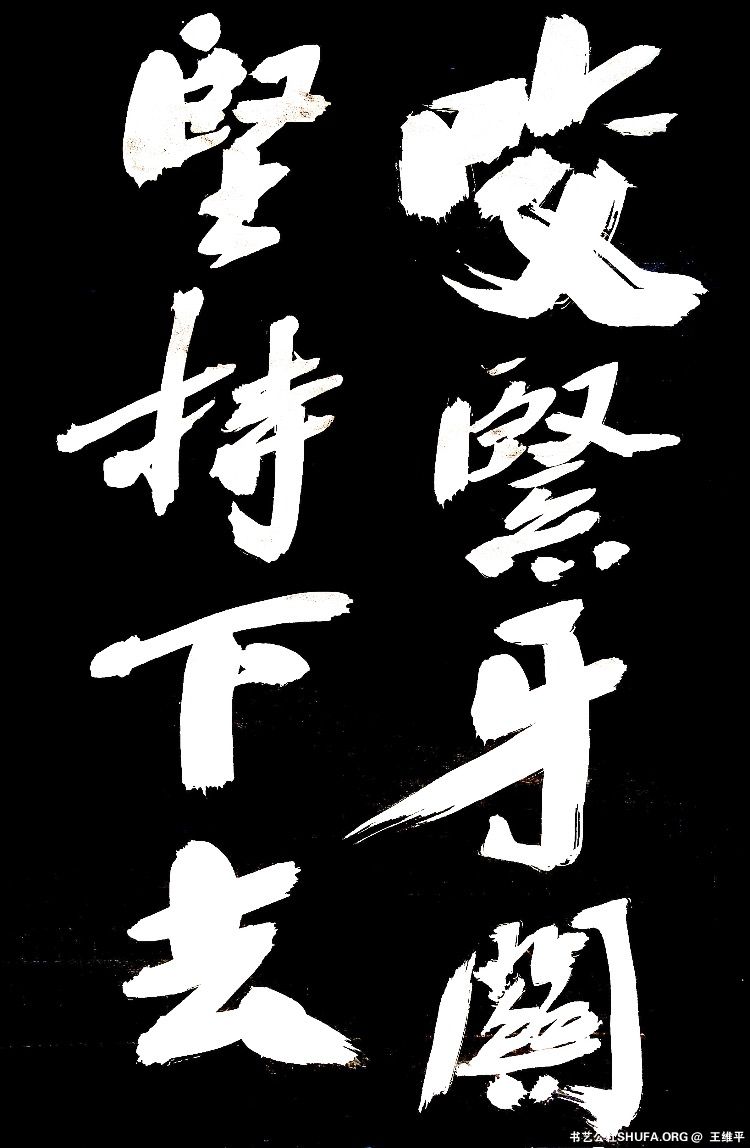 咬緊牙關
堅持下去
书艺公社SHUFA.ORG @ 王维平